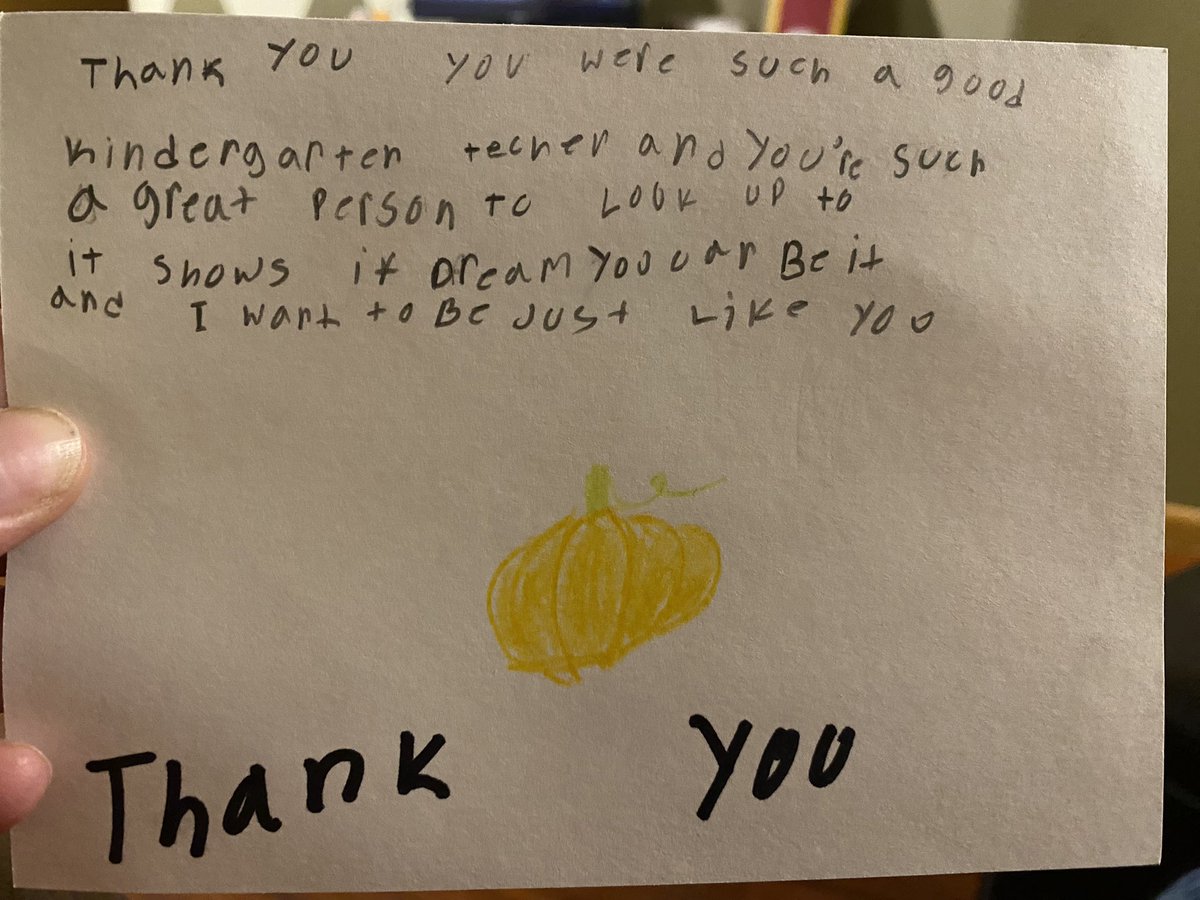 Thank you you were such a good
kindergarten techer and you're such
a great person to Look up to
it shows if Dream you can Be it
and I want to Be Just Like you
Thank you